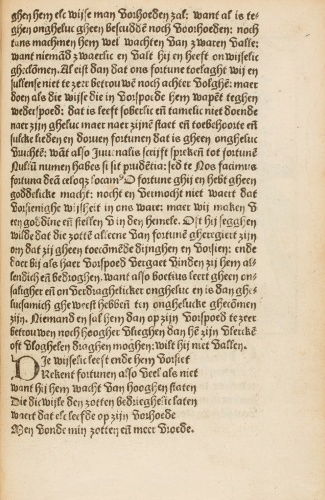 ghen hem elc wijse man vorhoeden zal: want al is te-
ghen ongheluc gheen bescudde noch voorhoeden: noch
tans machmen hem wel wachten van zwaren valle:
want niemād zwaerlic en valt hij en heeft onwijselic
gheclōmen. Al eist dan dat ons fortune toelaght wij en
sullense niet te zeer betrouwē noch achter volghē: maer
doen als die wijse die in vorspoede hem wapēt teghen
wederspoed: dat is leeft soberlic eñ tamelic niet doende
naer zijn gheluc maer naer zijnē staet eñ toebehoorte eñ
sulcke lieden en dorven fortunen dat is gheen ongheluc
vruchtē: wāt also Juvenalis scrijft sprekēt tot fortunē
Nullū numen habes si sit prudētia: sed te Nos facimus
fortuna deā celoqz locam⁹ O fortune ghij en hebt gheen
goddelicke macht: nocht en vermocht niet waert dat
vorsienighe wijsheit in ons ware: maer wij maken v
een goddine eñ stellen v in den hemele. Oft hij segghen
wilde dat die zottē alleene van fortunē gheregiert zijn
om dat zij gheen toecōmēde dijnghen en vorsien: ende
daer bij als haer vorspoed vergaet vinden zij hem al-
lendich eñ bedroghen. want also boetius leert gheen on-
salighert eñ onverdraghelicker onghelue en is dan ghe-
lucsamich ghe weest hebben tzn onghelucke ghecōmen
zijn. Niemand en sal hem dan op zijn vorspoed te zeer
betrouwen noch hoogher vlieghen dan hē zijn vlercke
oft vloghelen draghen moghen: wilt hij niet vallen.
Die wijselic leest ende hem vorsiet
Rekent fortunen also veel als niet
want hij hem wacht van hooghen staten
Die dicwijle den zotten bedrieghelic laten
waert dat elc leefde op zijn vorhoede
Men vonde min zotten eñ meer vroede.